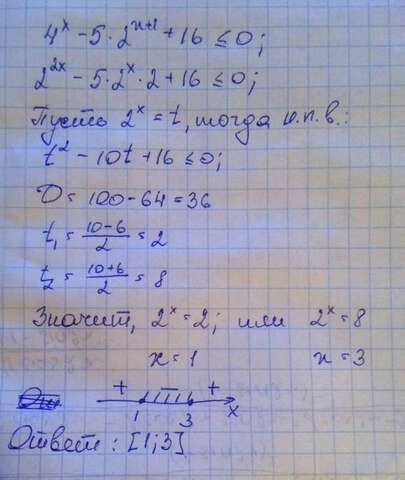 4ˣ - 5 · 2ˣ⁺¹ + 16 ≤ 0;
2²ˣ - 5 · 2ˣ · 2 + 16 ≤ 0;
Пусть 2ˣ = t, тогда н.п.в.:
t² - 10t + 16 ≤ 0;
D = 100 - 64 = 36
t₁ = (10-6)/2 = 2
t₂ = (10+6)/2 = 8
Значит, 2ˣ = 2; или 2ˣ = 8
x = 1 x = 3
+ - +
1 3 x
Ответ: [1; 3]